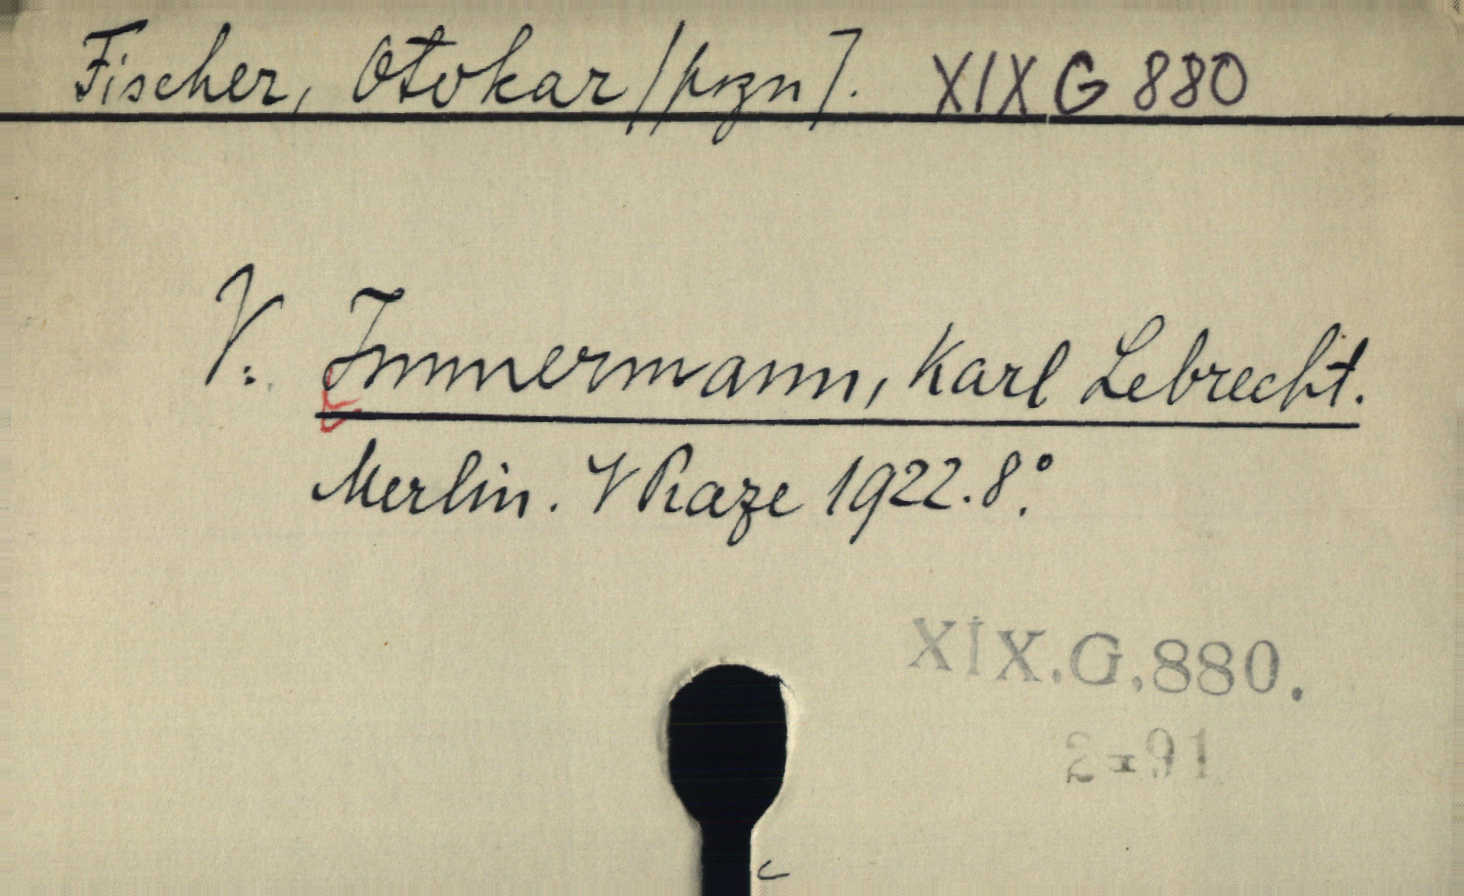 Fischer, Otokar [przn]. XIX G 880
V: Immermann, Karl Lebrecht.
Merlin. V Praze 1922. 8°.
XIX.G.880.
2=91